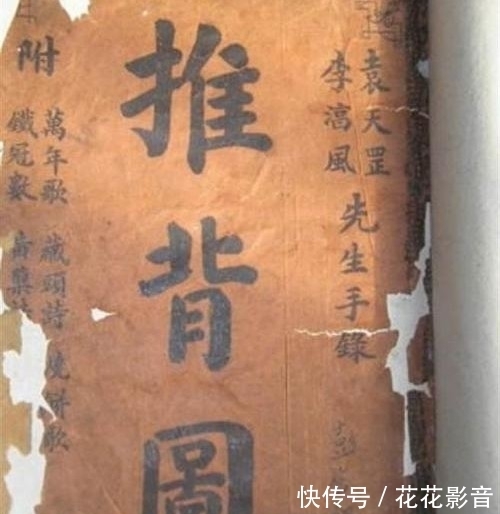 袁天罡
李淳風
先生手錄
推背圖
附
萬年歌 藏頭詩 燒餅歌
鐵冠數
快传号 / 花花影音